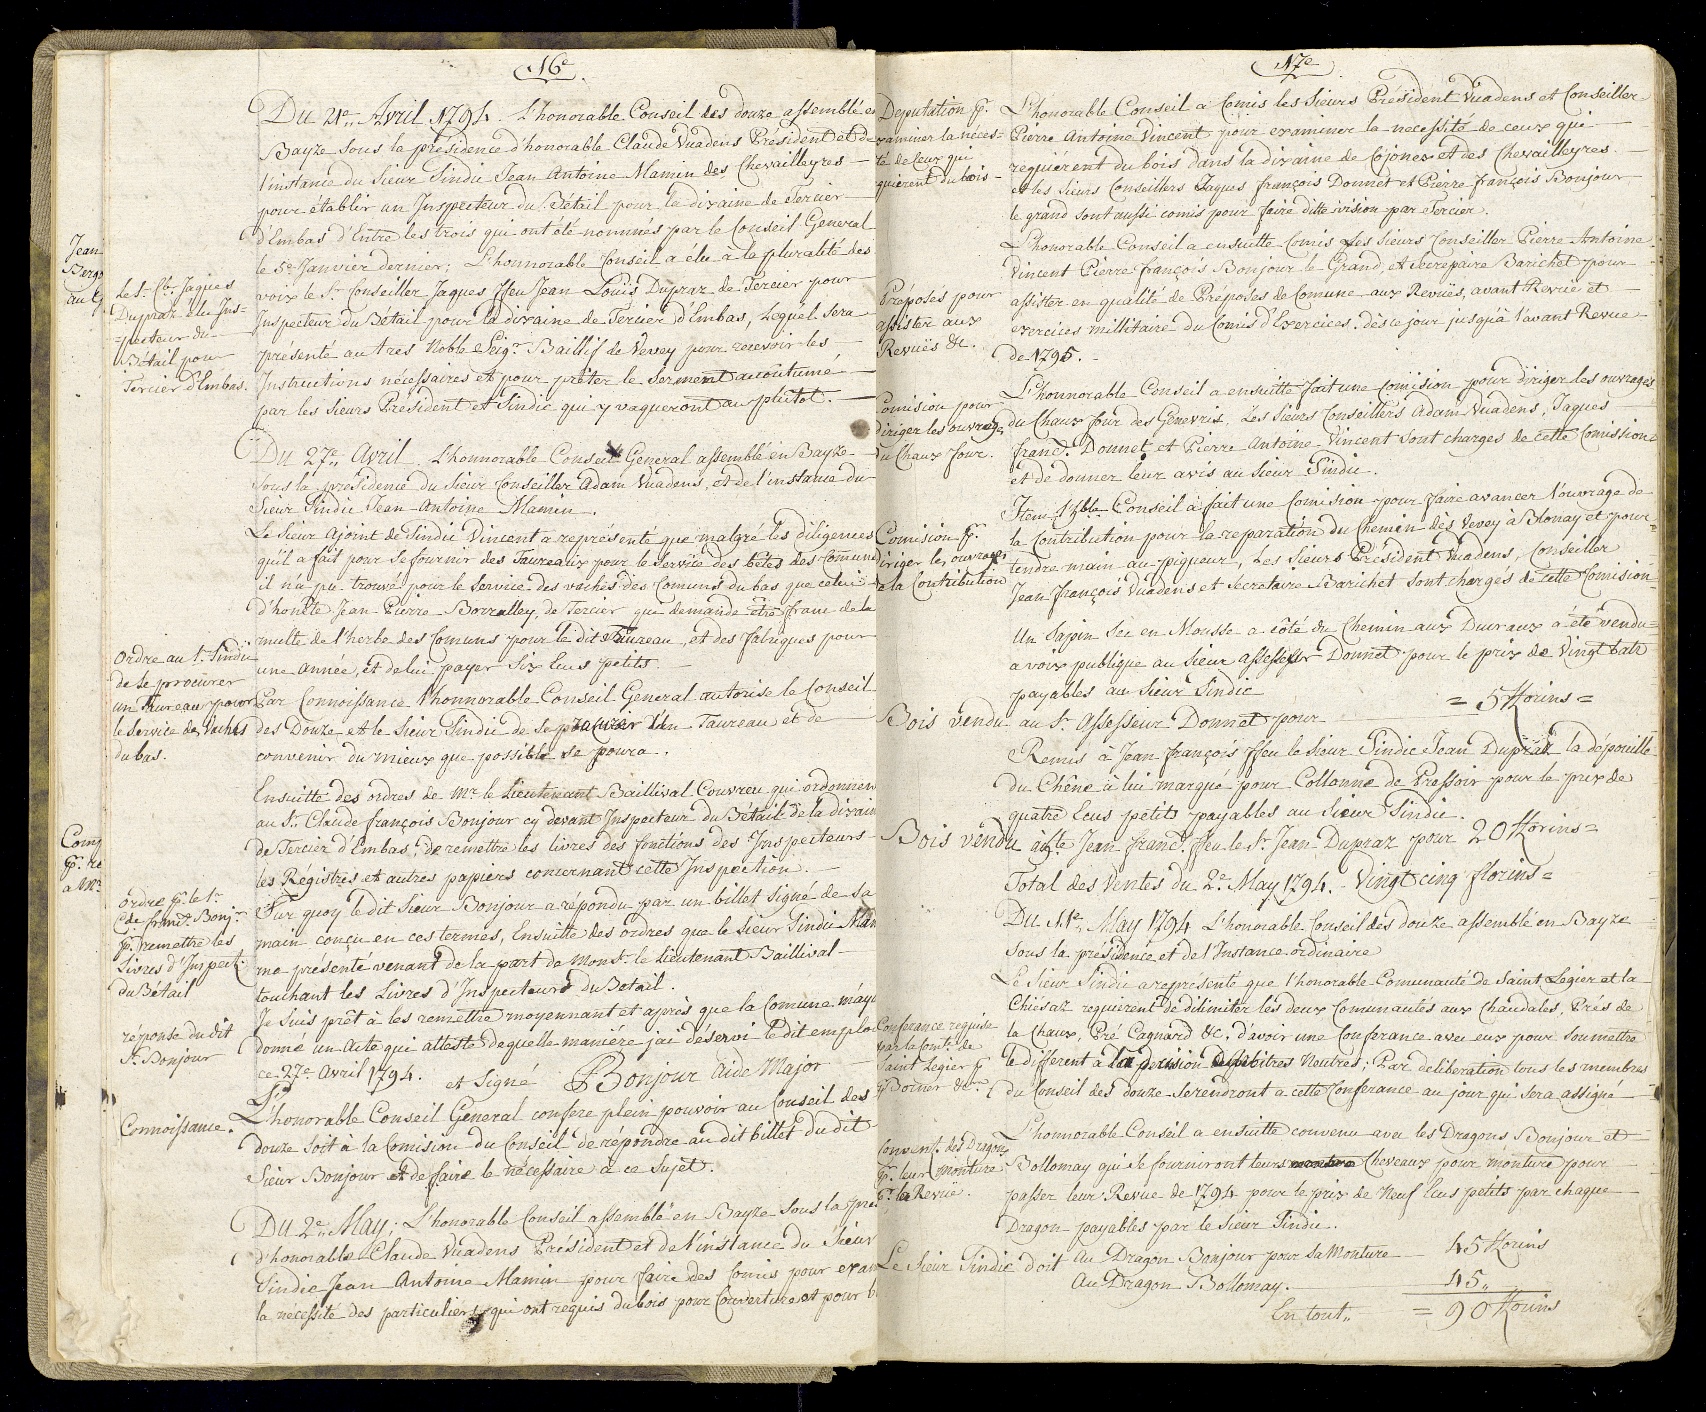 16e
Du 21e Avril 1794. L'honorable Conseil des douze assemblé en
Bayze sous la présidence d'honorable Claude Vuadens Président et de
l'instance du Sieur Sindic Jean Antoine Mamin des Chevailleyres
pour établir un Inspecteur du Bétail pour la dixaine de Tercier
d'Embas d'Entre les trois qui ont été nommés par le Conseil General
le 5e Janvier dernier; L'honnorable Conseil a élu à la pluralité des
voix le Sr Conseiller Jaques ffeu Jean Louis Dupraz de Tercier pour
Inspecteur du Bétail pour la dixaine de Tercier d'Embas, Lequel sera
présenté au tres Noble Seigr Baillif de Vevey pour recevoir les
Instructions nécessaires et pour prêter le serment acoutumé
par les Sieurs President et Sindic qui y vaqueront au plutot.
Le Sr Cr Jaques
Dupraz élu Ins=
=pecteur du
Bétail pour
Tercier d'Embas.
Du 27e Avril. L'honnorable Conseil General assemblé en Bayze
sous la presidence du Sieur Conseiller Adam Vuadens, et de l'instance du
Sieur Sindic Jean Antoine Mamin.
Le Sieur Ajoint de Sindic Vincent a représenté que malgré les diligences
qu'il a fait pour se fournir des Taureaux pour le service des bêtes des Comuns
il n'a pu trouvé pour le service des vaches des Comuns du bas que celui
d'honete Jean Pierre Borralley, de Tercier que demande etre franc de la
multe de l'herbe des Comuns pour le dit Taureau, et des fabriques pour
une année, et de lui payer Six Ecus petits
Par Connoissance l'honnorable Conseil General autorise le Conseil
des Douze et le Sieur Sindic de se procurer un Taureau et de
convenir du mieux que possible se poura.
Ordre au Sr Sindic
de se procurer
un Taureau pour
le service des Vaches
du bas.
Ensuitte des ordres de Mr le Lieutenant Baillival Couvreu qui ordonnent
au Sr Claude françois Bonjour cy devant Inspecteur du Bétail de la dixaine
de Tercier d'Embas, de remettre les livres des fonctions des Inspecteurs
les Régistres et autres papiers concernant cette Inspection.
Sur quoy le dit Sieur Bonjour a répondu par un billet signé de sa
main conçu en ces termes, Ensuitte des ordres que le Sieur Sindic Mam
me présenté venant de la part de Monsr le Lieutenant Baillival
touchant les Livres d'Inspecteurs du Betail.
Je suis prêt à les remettre moyennant et après que la Comune m'aye
donné un Acte qui atteste de quelle manière j'ai déservi le dit emploi
ce 27e Avril 1794. et signé Bonjour Aide Major
ordre pr le Sr
Cde franç. Bonjr
pr remettre les
Livres d'Inspectr
du Bétail
réponse du dit
Sr Bonjour
L'honorable Conseil General confere plein pouvoir au Conseil des
douze soit à la Comision du Conseil de répondre au dit billet du dit
Sieur Bonjour et de faire le nécessaire à ce sujet.
Connoissance.
Du 2e May; L'honorable Conseil assemblé en Bayze sous la pres
d'honorable Claude Vuadens Président et de l'instance du Sieur
Sindic Jean Antoine Mamin pour faire des Comis pour exam
la nécessité des particuliers qui ont requis du bois pour Couverture et pour
Jean
Berge
au
Comp
pr re
a Mr
17e
Deputation pr
examiner la néces=
té de ceux qui
quierent du bois
L'honorable Conseil a Comis les Sieurs Président Vuadens et Conseiller
Pierre Antoine Vincent pour examiner la necessité de ceux qui
requierent du bois dans la dixaine de Cojonex et des Chevailleyres.
et les Sieurs Conseillers Jaques françois Donnet et Pierre françois Bonjour
le grand sont aussi comis pour faire ditte vision par Tercier.
Préposés pour
assister aux
Revuës &c.
L'honorable Conseil a ensuitte Comis les Sieurs Conseiller Pierre Antoine
Vincent Pierre françois Bonjour le Grand, et Secrepaire Barichet pour
assister en qualité de Préposes de Comune aux Revües, avant Revüe et
exercices millitaire du Comis d'Exercices. dès ce jour jusqu'à l'avant Revue
de 1795.
Comision pour
diriger les ouvrages
du Chaux four.
L'honnorable Conseil a ensuitte fait une Comision pour diriger les ouvrages
du Chaux four des Genevris, Les Sieurs Conseillers Adam Vuadens, Jaques
franc. Donnet et Pierre Antoine Vincent sont chargés de cette Comission
et de donner leur avis au Sieur Sindic.
Comision pr
diriger les ouvrages
de la Contribution
Item l'hble Conseil à fait une Comision pour faire avancer l'ouvrage de
la Contribution pour la reparation du Chemin dès Vevey à Blonay et pour
tendre main au piqueur, Les Sieurs Président Vuadens, Conseiller
Jean françois Vuadens et Secretaire Barichet sont chargés de cette Comision
Un Sapin Sec en Mousse a côté du Chemin aux Duvraux a été vendu
a voix publique au Sieur Assesseur Donnet pour le prix de Vingt batz
payables au Sieur Sindic
Bois vendu au Sr Assesseur Donnet pour = 5 florins =
Remis à Jean françois ffeu le Sieur Sindic Jean Dupraz la dépouille
du Chêne à lui marqué pour Collonne de Pressoir pour le prix de
quatre Ecus petits payables au Sieur Sindic.
Bois vendu à hte Jean franc. ffeu le Sr Jean Dupraz pour 20 florins =
Total des Ventes du 2e May 1794. Vingt cinq florins =
Du 11e May 1794 L'honorable Conseil des douze assemblé en Bayze
sous la présidence et de l'Instance ordinaire
Conferance requise
par la Comté de
Saint Legier pr
Borner &c.
Le Sieur Sindic a représenté que l'honorable Comunauté de Saint Legier et la
Chiesaz requierent de délimiter les deux Comunautés aux Chaudales, Près de
la Chaux, Pré Cagnard &c. d'avoir une Conferance avec eux pour soumettre
le différent à la décision d'Arbitres Neutres; Par déliberation tous les membres
du Conseil des douze se rendront a cette Conferance au jour qui sera assigné
Convent. des Dragons
pr leur monture
pr la Revüe.
L'honnorable Conseil a ensuitte convenu avec les Dragons Bonjour et
Bollomay qui se fourniront leurs Cheveaux pour monture pour
passer leur Revue de 1794 pour le prix de Neuf Ecus petits par chaque
Dragon payables par le Sieur Sindic.
Le Sieur Sindic doit au Dragon Bonjour pour sa Monture 45 florins
Au Dragon Bollomay. 45"
En tout" = 90 florins